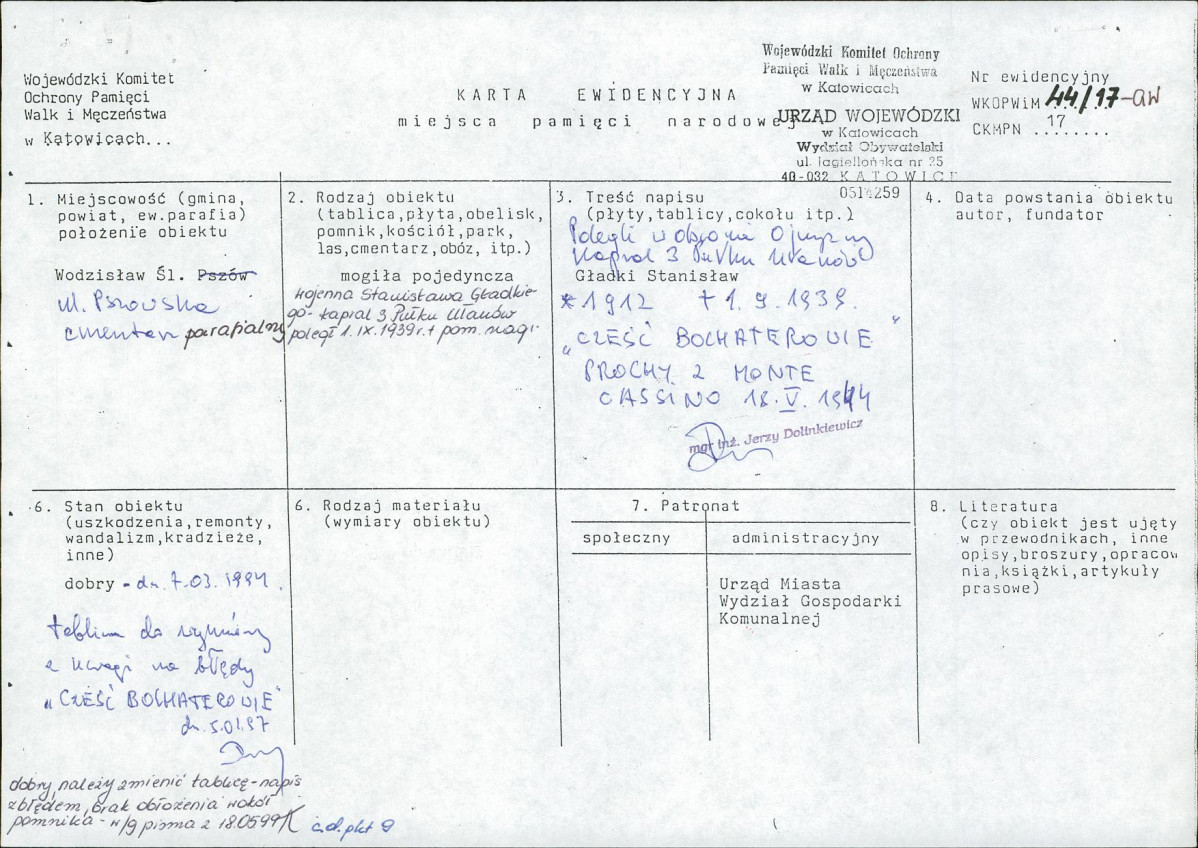 Wojewódzki Komitet
Ochrony Pamięci
Walk i Męczeństwa
w Katowicach...
KARTA EWIDENCYJNA
miejsca pamięci narodowej
Wojewódzki Komitet Ochrony
Pamięci Walk i Męczeństwa
w Katowicach
URZĄD WOJEWÓDZKI
w Katowicach
Wydział Obywatelski
ul. Jagiellońska nr 25
40-032 KATOWICE
0514259
Nr ewidencyjny
WKOPWiM 44/17-AW
CKMPN 17
1. Miejscowość (gmina,
powiat, ew.parafia)
położenie obiektu
Wodzisław Śl. Pszów
ul. Pszowska
cmentarz parafialny
2. Rodzaj obiektu
(tablica,płyta,obelisk,
pomnik,kościół,park,
las,cmentarz,obóz, itp.)
mogiła pojedyncza
wojenna Stanisława Gładkie-
go- kapral 3 Pułku Ułanów
poległ 1.IX.1939r.+ pom. nagr.
3. Treść napisu
(płyty,tablicy,cokołu itp.)
Polegli w obronie Ojczyzny
Kapral 3 Pułku Ułanów
Gładki Stanisław
*1912 +1.9.1939.
„CZEŚĆ BOCHATEROWIE"
PROCHY Z MONTE
CASSINO 18.V.1944
mgr inż. Jerzy Dolinkiewicz
4. Data powstania obiektu
autor, fundator
6. Stan obiektu
(uszkodzenia,remonty,
wandalizm,kradzieże,
inne)
dobry - dn. 7.03.1994.
tablica do wymiany
z uwagi na błędy
„CZEŚĆ BOCHATEROWIE"
dn. 5.01.97
dobry, należy zmienić tablicę-napis
z błędem, brak obłożenia wokół
pomnika - w/g pisma z 18.0599
c.d. pkt 9
6. Rodzaj materiału
(wymiary obiektu)
7. Patronat
społeczny
administracyjny
Urząd Miasta
Wydział Gospodarki
Komunalnej
8. Literatura
(czy obiekt jest ujęty
w przewodnikach, inne
opisy,broszury,opracow
nia,książki,artykuły
prasowe)